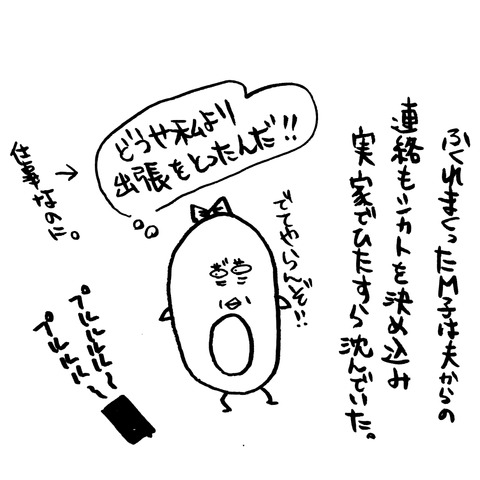 ふくれまくったM子は夫からの
連絡もシカトを決め込み
実家でひたすら沈んでいた。
どうや私より
出張をとったんだ!!
でてやらんぞ!!
仕事なのに。
プルルルル〜
プルルルル〜